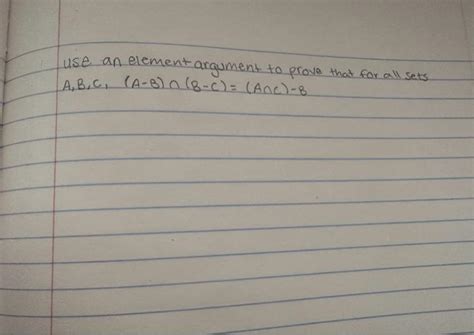 use an element argument to prove that for all sets
A,B,C, (A-B)∩(B-C)=(A∩C)-B